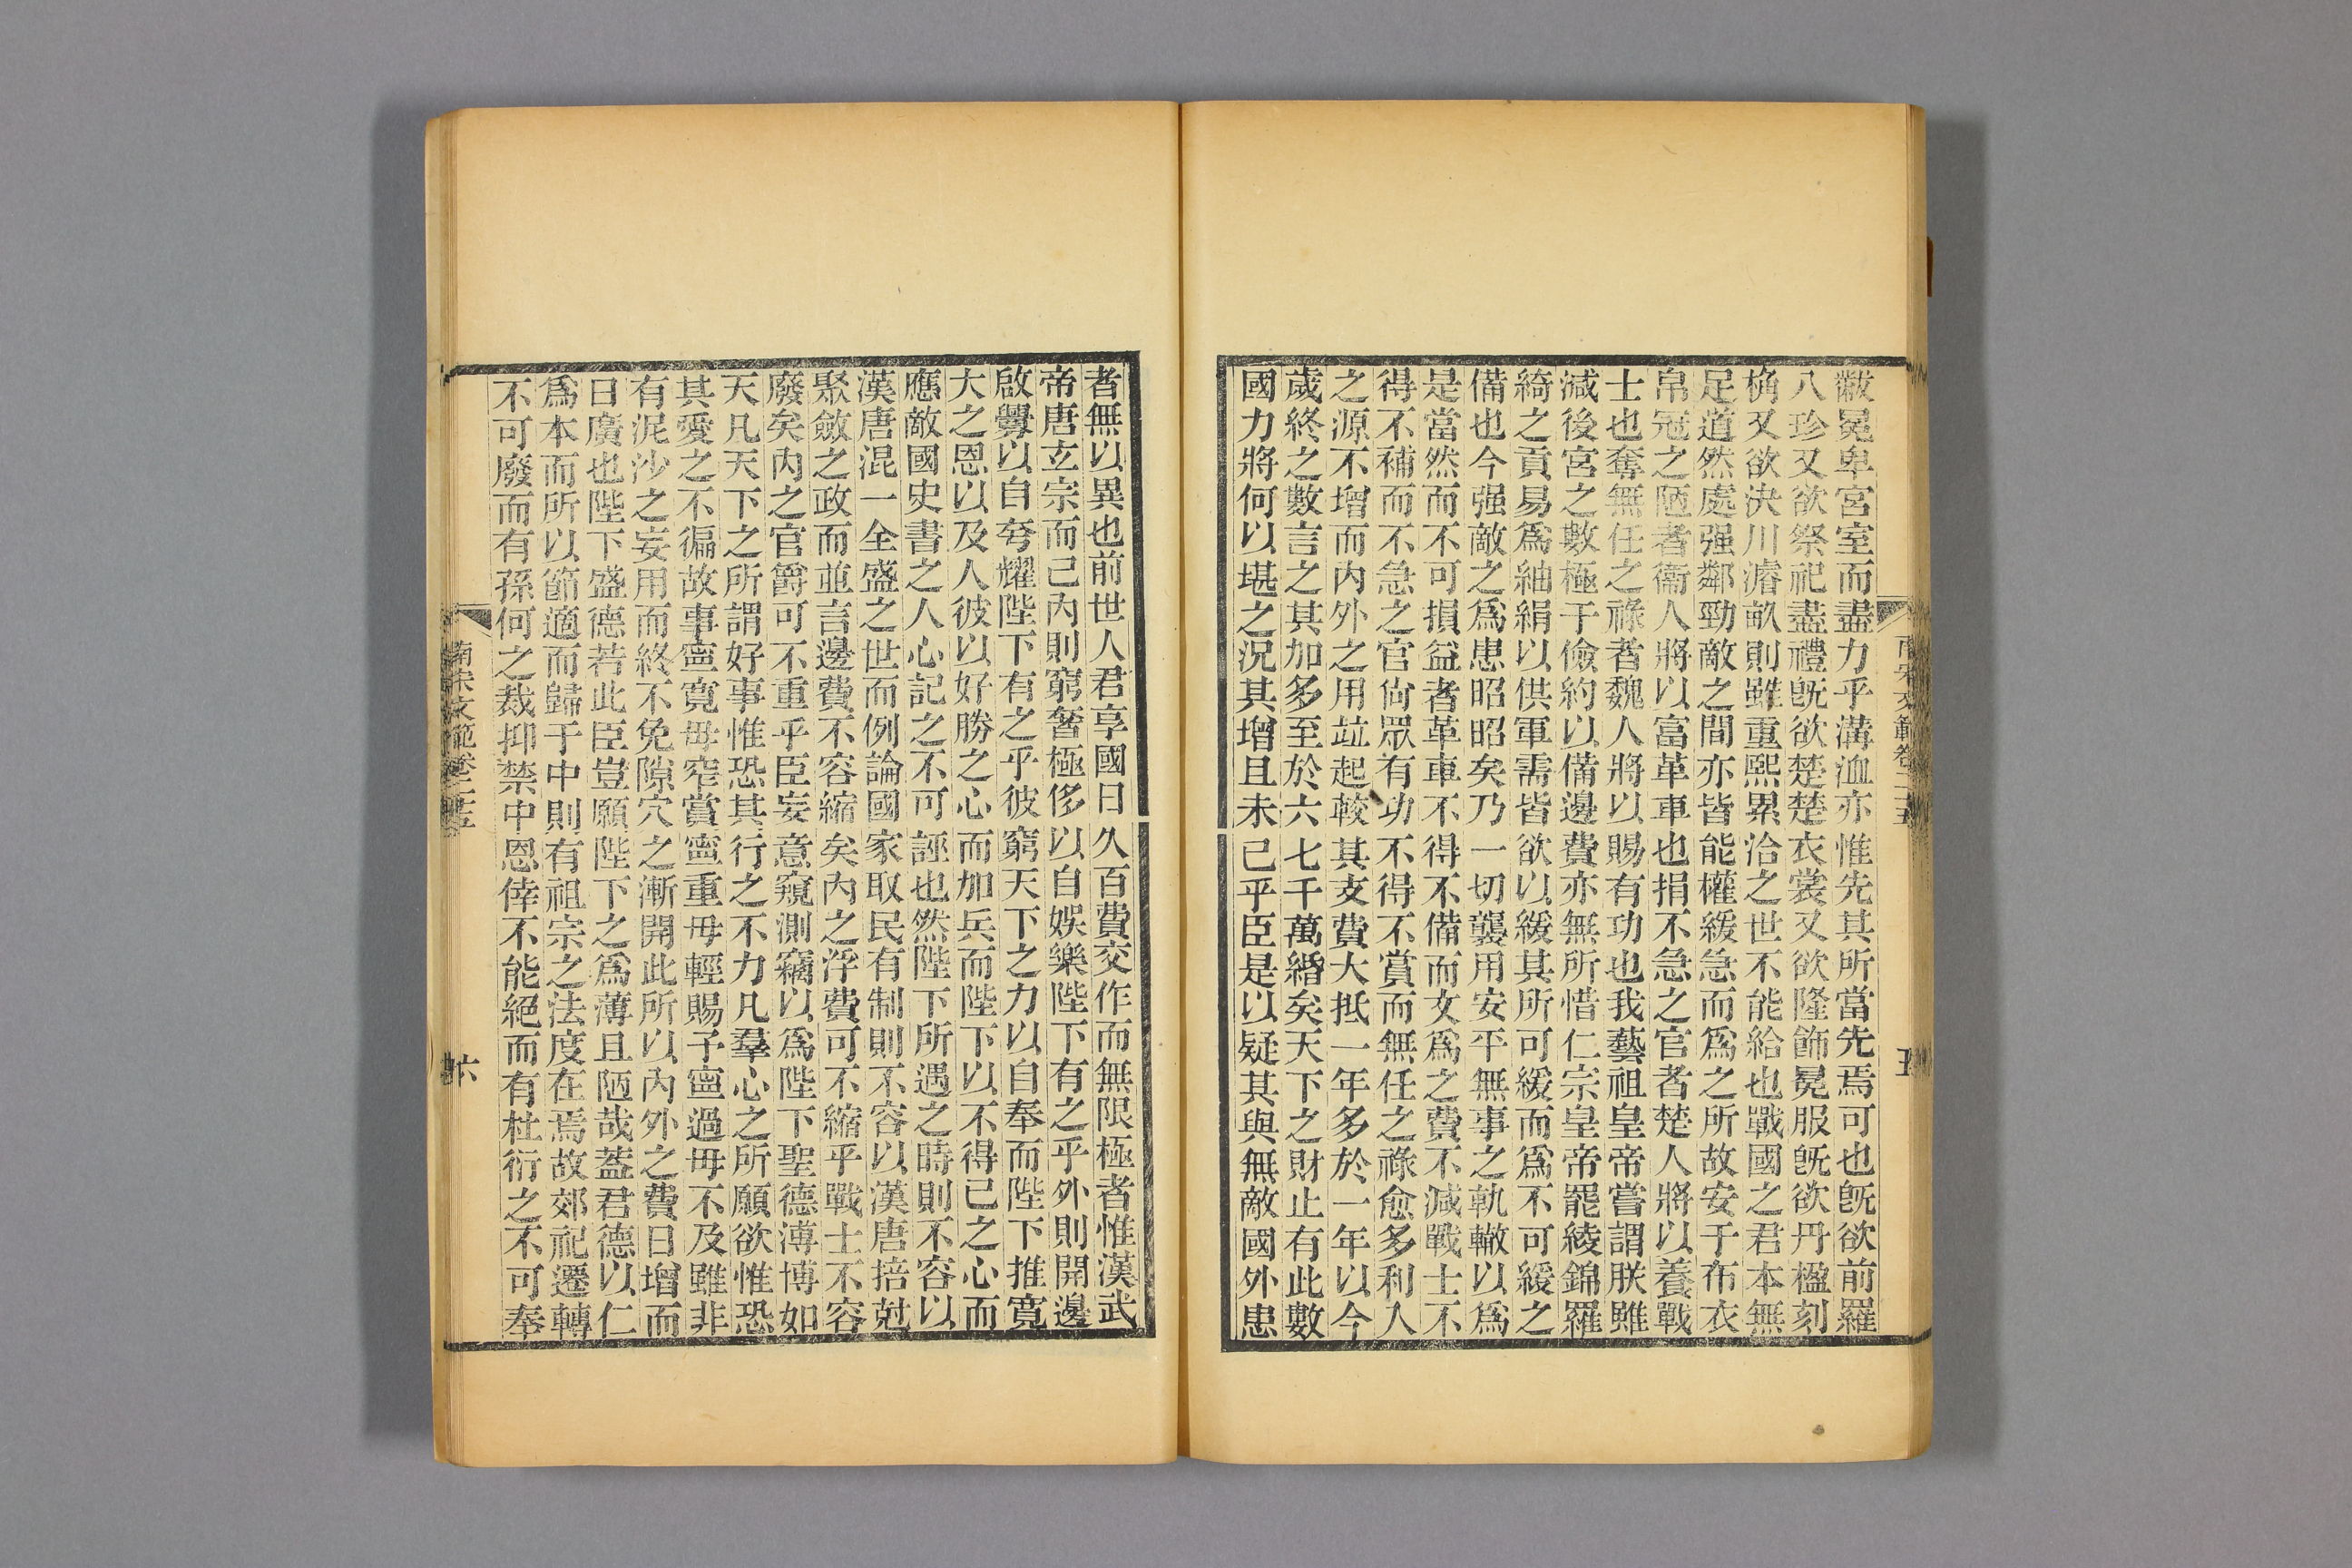 南宋文範卷二十五
五
黻冕卑宮室而盡力乎溝洫亦惟先其所當先焉可也旣欲前羅
八珍又欲祭祀盡禮旣欲楚楚衣裳又欲隆飾冕服旣欲丹楹刻
桷又欲決川濬畝則雖重熙累洽之世不能給也戰國之君本無
足道然處强鄰勁敵之間亦皆能權緩急而爲之所故安于布衣
帛冠之陋者衞人將以富革車也捐不急之官者楚人將以養戰
士也奪無任之祿者魏人將以賜有功也我藝祖皇帝嘗謂朕雖
減後宮之數極于儉約以備邊費亦無所惜仁宗皇帝罷綾錦羅
綺之貢易爲紬絹以供軍需皆欲以緩其所可緩而爲不可緩之
備也今强敵之爲患昭昭矣乃一切襲用安平無事之軌轍以爲
是當然而不可損益者革車不得不備而文爲之費不減戰士不
得不補而不急之官尙眾有功不得不賞而無任之祿愈多利人
之源不增而內外之用竝起較其支費大抵一年多於一年以今
歲終之數言之其加多至於六七千萬緡矣天下之財止有此數
國力將何以堪之況其增且未已乎臣是以疑其與無敵國外患
者無以異也前世人君享國日久百費交作而無限極者惟漢武
帝唐玄宗而已內則窮奢極侈以自娛樂陛下有之乎外則開邊
啟釁以自夸耀陛下有之乎彼窮天下之力以自奉而陛下推寬
大之恩以及人彼以好勝之心而加兵而陛下以不得已之心而
應敵國史書之人心記之不可誣也然陛下所遇之時則不容以
漢唐混一全盛之世而例論國家取民有制則不容以漢唐掊尅
聚斂之政而並言邊費不容縮矣內之浮費可不縮乎戰士不容
廢矣內之官爵可不重乎臣妄意窺測竊以爲陛下聖德溥博如
天凡天下之所謂好事惟恐其行之不力凡羣心之所願欲惟恐
其愛之不徧故事寧寬毋窄賞寧重毋輕賜予寧過毋不及雖非
有泥沙之妄用而終不免隙穴之漸開此所以內外之費日增而
日廣也陛下盛德若此臣豈願陛下之爲薄且陋哉蓋君德以仁
爲本而所以節適而歸于中則有祖宗之法度在焉故郊祀遷轉
不可廢而有孫何之裁抑禁中恩倖不能絕而有杜衍之不可奉
南宋文範卷二十五
六